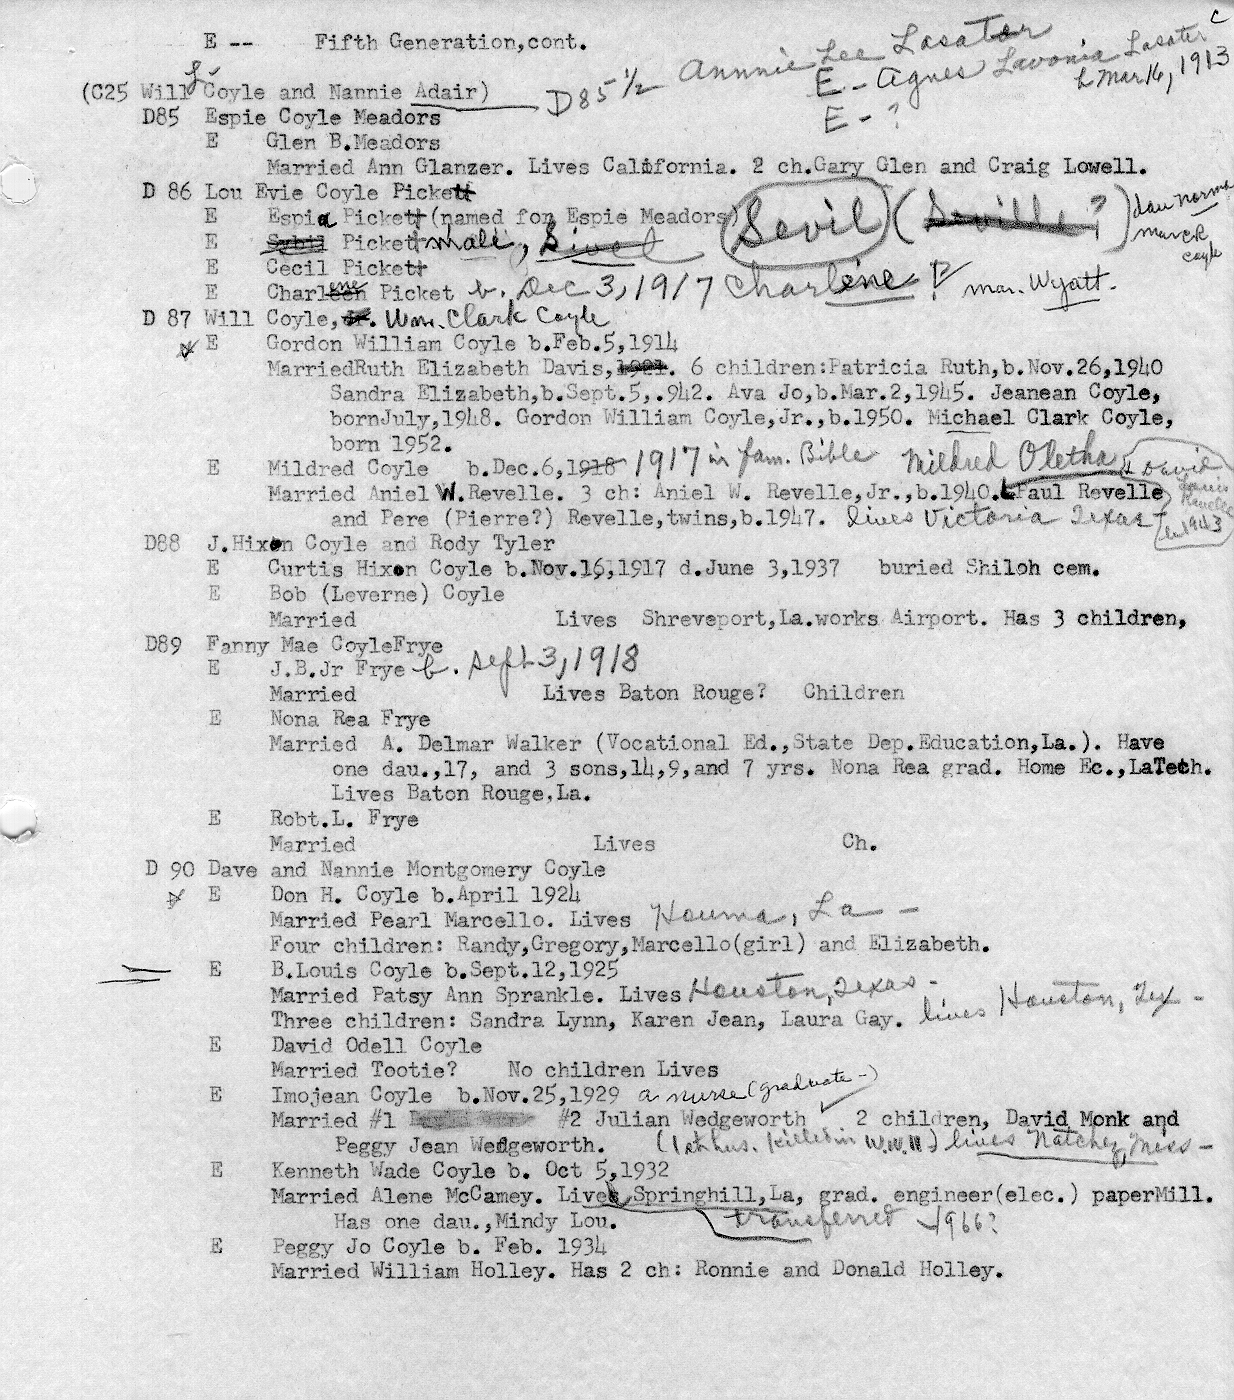 E -- Fifth Generation,cont.
D85 1/2 Annnie Lee Lasater
E - Agnes Lavonia Lasater
b Mar 16, 1913
E - ?
(C25 Will Coyle and Nannie Adair)
D85 Espie Coyle Meadors
E Glen B.Meadors
Married Ann Glanzer. Lives California. 2 ch.Gary Glen and Craig Lowell.
D 86 Lou Evie Coyle Pickett
E Espia Pickett (named for Espie Meadors)
Sevil (Seville?) dau Norma
mar. C R
Coyle
E Sybil Pickett male, Sivel
E Cecil Pickett
E Charleen Picket b. Dec 3, 1917 Charlene P mar. Wyatt.
D 87 Will Coyle, Jr. Wm. Clark Coyle
E Gordon William Coyle b.Feb.5,1914
MarriedRuth Elizabeth Davis,1921. 6 children:Patricia Ruth,b.Nov.26,1940
Sandra Elizabeth,b.Sept.5,.942. Ava Jo,b.Mar.2,1945. Jeanean Coyle,
bornJuly,1948. Gordon William Coyle,Jr.,b.1950. Michael Clark Coyle,
born 1952.
E Mildred Coyle b.Dec.6,1918 1917 in fam. Bible Mildred Oletha
Married Aniel W.Revelle. 3 ch: Aniel W. Revelle,Jr.,b.1940. Paul Revelle
David
Louis
Revelle
b. 1943
and Pere (Pierre?) Revelle,twins,b.1947. lives Victoria Texas
D88 J.Hixon Coyle and Rody Tyler
E Curtis Hixon Coyle b.Nov.16,1917 d.June 3,1937 buried Shiloh cem.
E Bob (Leverne) Coyle
Married Lives Shreveport,La.works Airport. Has 3 children,
D89 Fanny Mae CoyleFrye
E J.B.Jr Frye b. Sept 3, 1918
Married Lives Baton Rouge? Children
E Nona Rea Frye
Married A. Delmar Walker (Vocational Ed.,State Dep.Education,La.). Have
one dau.,17, and 3 sons,14,9,and 7 yrs. Nona Rea grad. Home Ec.,LaTech.
Lives Baton Rouge,La.
E Robt.L. Frye
Married Lives Ch.
D 90 Dave and Nannie Montgomery Coyle
E Don H. Coyle b.April 1924
Married Pearl Marcello. Lives Houma, La -
Four children: Randy,Gregory,Marcello(girl) and Elizabeth.
E B.Louis Coyle b.Sept.12,1925
Married Patsy Ann Sprankle. Lives Houston, Texas -
Three children: Sandra Lynn, Karen Jean, Laura Gay. lives Houston, Tex -
E David Odell Coyle
Married Tootie? No children Lives
E Imojean Coyle b.Nov.25,1929 a nurse (graduate -)
Married #1 #2 Julian Wedgeworth 2 children, David Monk and
Peggy Jean Wedgeworth. (1st hus. killed in W.W.II) lives Natchez, Miss -
E Kenneth Wade Coyle b. Oct 5,1932
Married Alene McCamey. Lives Springhill,La, grad. engineer(elec.) paperMill.
Has one dau.,Mindy Lou. transferred 1966?
E Peggy Jo Coyle b. Feb. 1934
Married William Holley. Has 2 ch: Ronnie and Donald Holley.